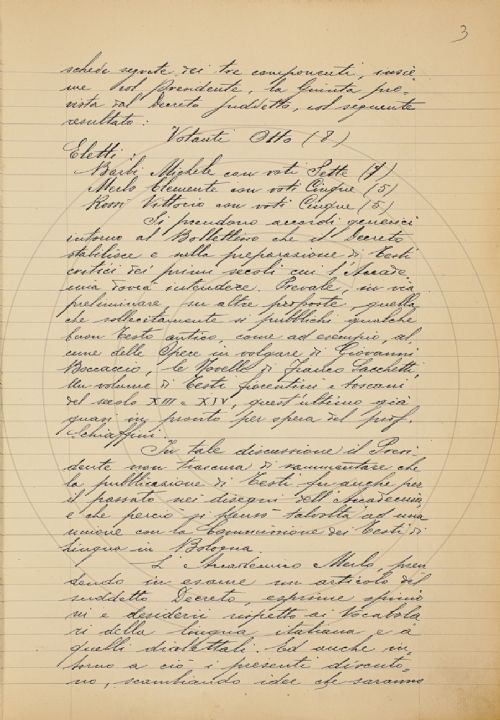 3
schede segrete dei tre componenti, insie-
me col Presidente, la Giunta pre-
vista dal Decreto suddetto, col seguente
resultato:
Votanti Otto (8)
Eletti:
Barbi Michele con voti Sette (7)
Merlo Clemente con voti Cinque (5)
Rossi Vittorio con voti Cinque (5)
Si prendono accordi generici
intorno al Bollettino che il Decreto
stabilisce e sulla preparazione di Testi
critici dei primi secoli cui l'Accade
mia dovrà intendere. Prevale, in via
preliminare, su altre proposte, quella
che sollecitamente si pubblichi qualche
buon testo antico, come ad esempio, al
cune delle Opere in volgare di Giovanni
Boccaccio, le Novelle di Franco Sacchetti,
un volume di Testi fiorentini e toscani
del secolo XIII e XIV, quest'ultimo già
quasi in pronto per opera del prof.
Schiaffini.
In tale discussione il Presi-
dente non trascura di rammentare che
la pubblicazione di Testi fu anche per
il passato nei disegni dell'Accademia,
e che perciò si pensò talvolta ad una
unione con la Commissione dei Testi di
Lingua in Bologna.
L'Accademico Merlo, pren
dendo in esame un articolo del
suddetto Decreto, esprime opinio
ni e desiderii rispetto ai Vocabola
ri della lingua italiana e a
quelli dialettali. Ed anche in-
torno a ciò i presenti discuto-
no, scambiando idee che saranno